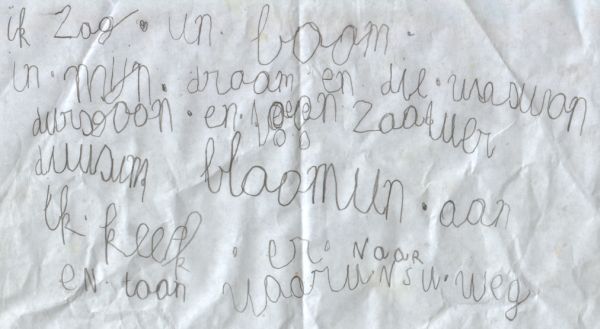 ik zag. un. boom.
in. mijn. draam en die. was wan
en. zaatuer
duusum bloomun. aan
ik. keek. er. NaaR
eN. toan waaruN su. weg